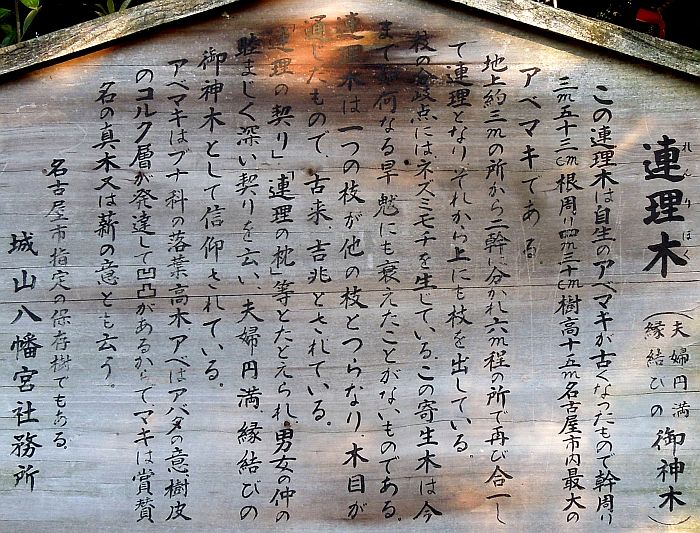 連理木
れんりぼく
(夫婦円満
縁結びの
御神木)
この連理木は自生のアベマキが古くなったもので幹周り
三m五十三cm根周り四m三十cm樹高十五m名古屋市内最大の
アベマキである
地上約三mの所から二幹に分かれ六m程の所で再び合一し
て連理となりそれから上にも枝を出している。
枝の分岐点には、ネズミモチを生じている。この寄生木は今
まで如何なる旱魃にも衰えたことがないものである。
連理木は一つの枝が他の枝とつらなり、木目が
通じたもので、古来、吉兆とされている。
「連理の契り」「連理の枕」等とたとえられ、男女の仲の
睦まじく深い契りを云い、夫婦円満、縁結びの
御神木として信仰されている。
アベマキはブナ科の落葉高木アベはアバタの意樹皮
のコルク層が発達して凹凸があるからでマキは賞賛
名の真木又は薪の意とも云う。
名古屋市指定の保存樹でもある。
城山八幡宮社務所